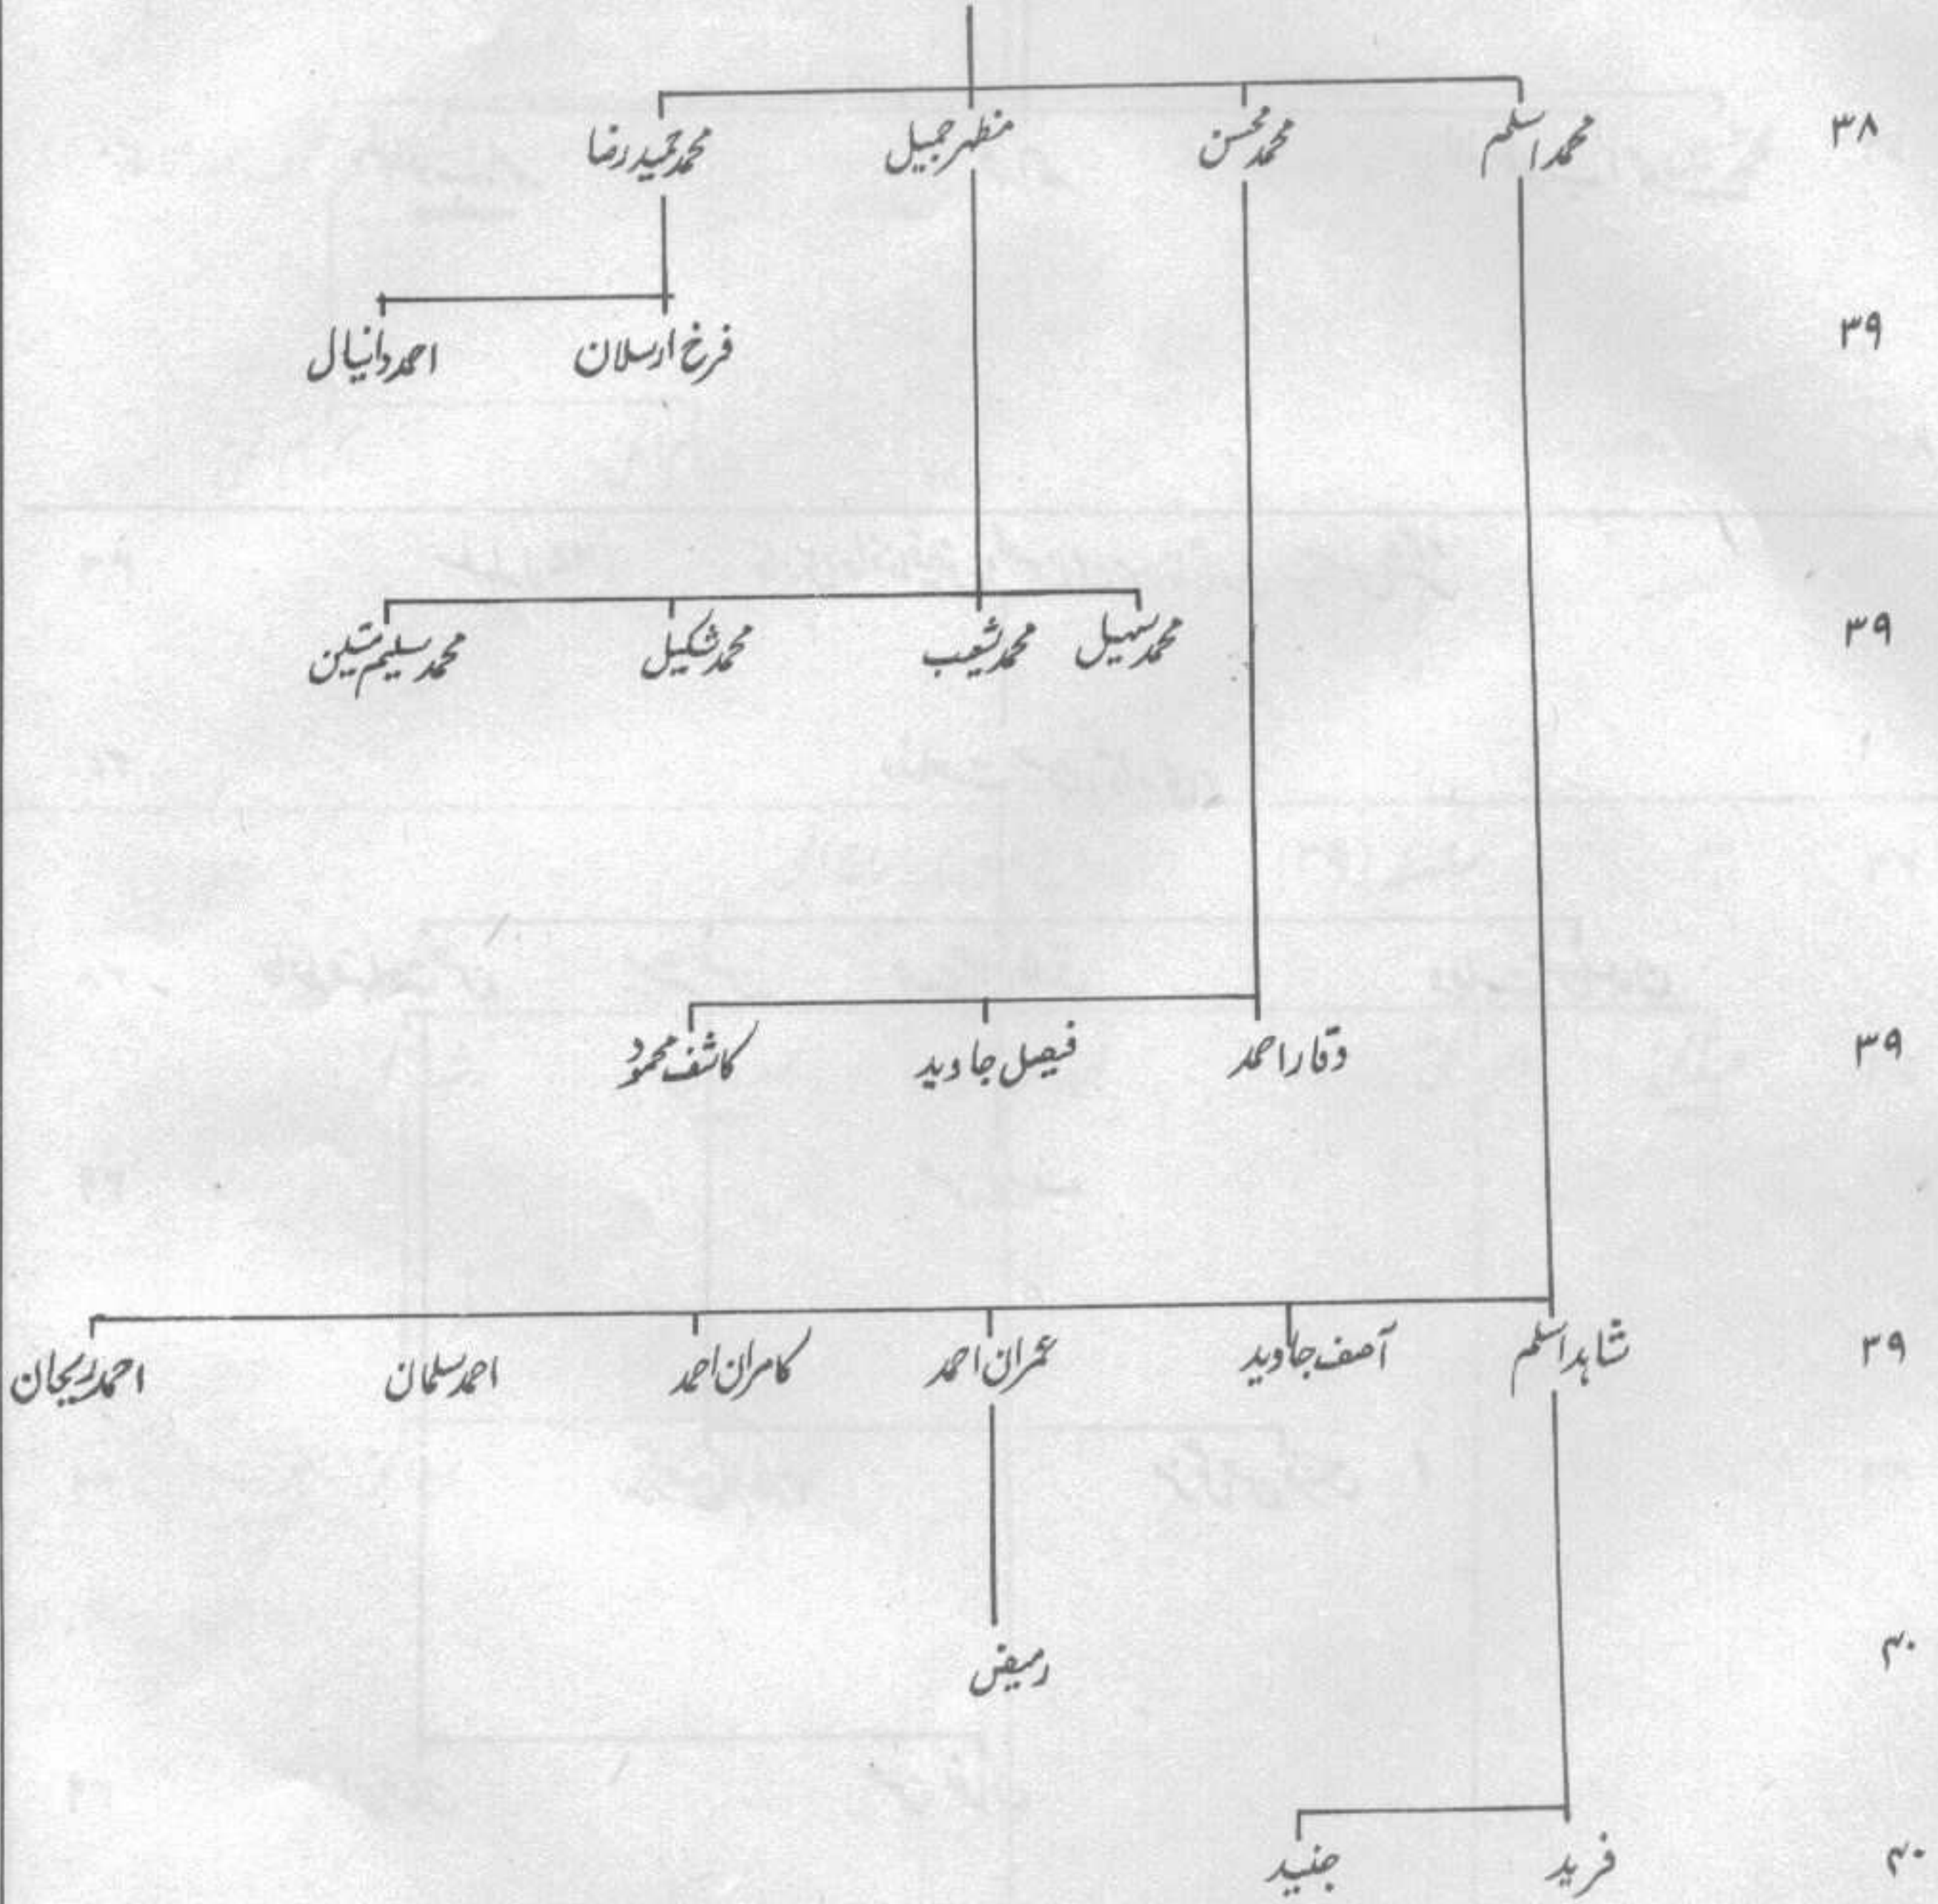 ۳۸ محمد اسلم محمد محسن مظہر جمیل محمد حمید رضا
۳۹ فرخ ارسلان احمد دانیال
۳۹ محمد سہیل محمد شعیب محمد شکیل محمد سلیم متین
۳۹ وقار احمد فیصل جاوید کاشف محمود
۳۹ شاہد اسلم آصف جاوید عمران احمد کامران احمد احمد سلمان احمد ریحان
۴۰ رمیض
۴۰ فرید جنید